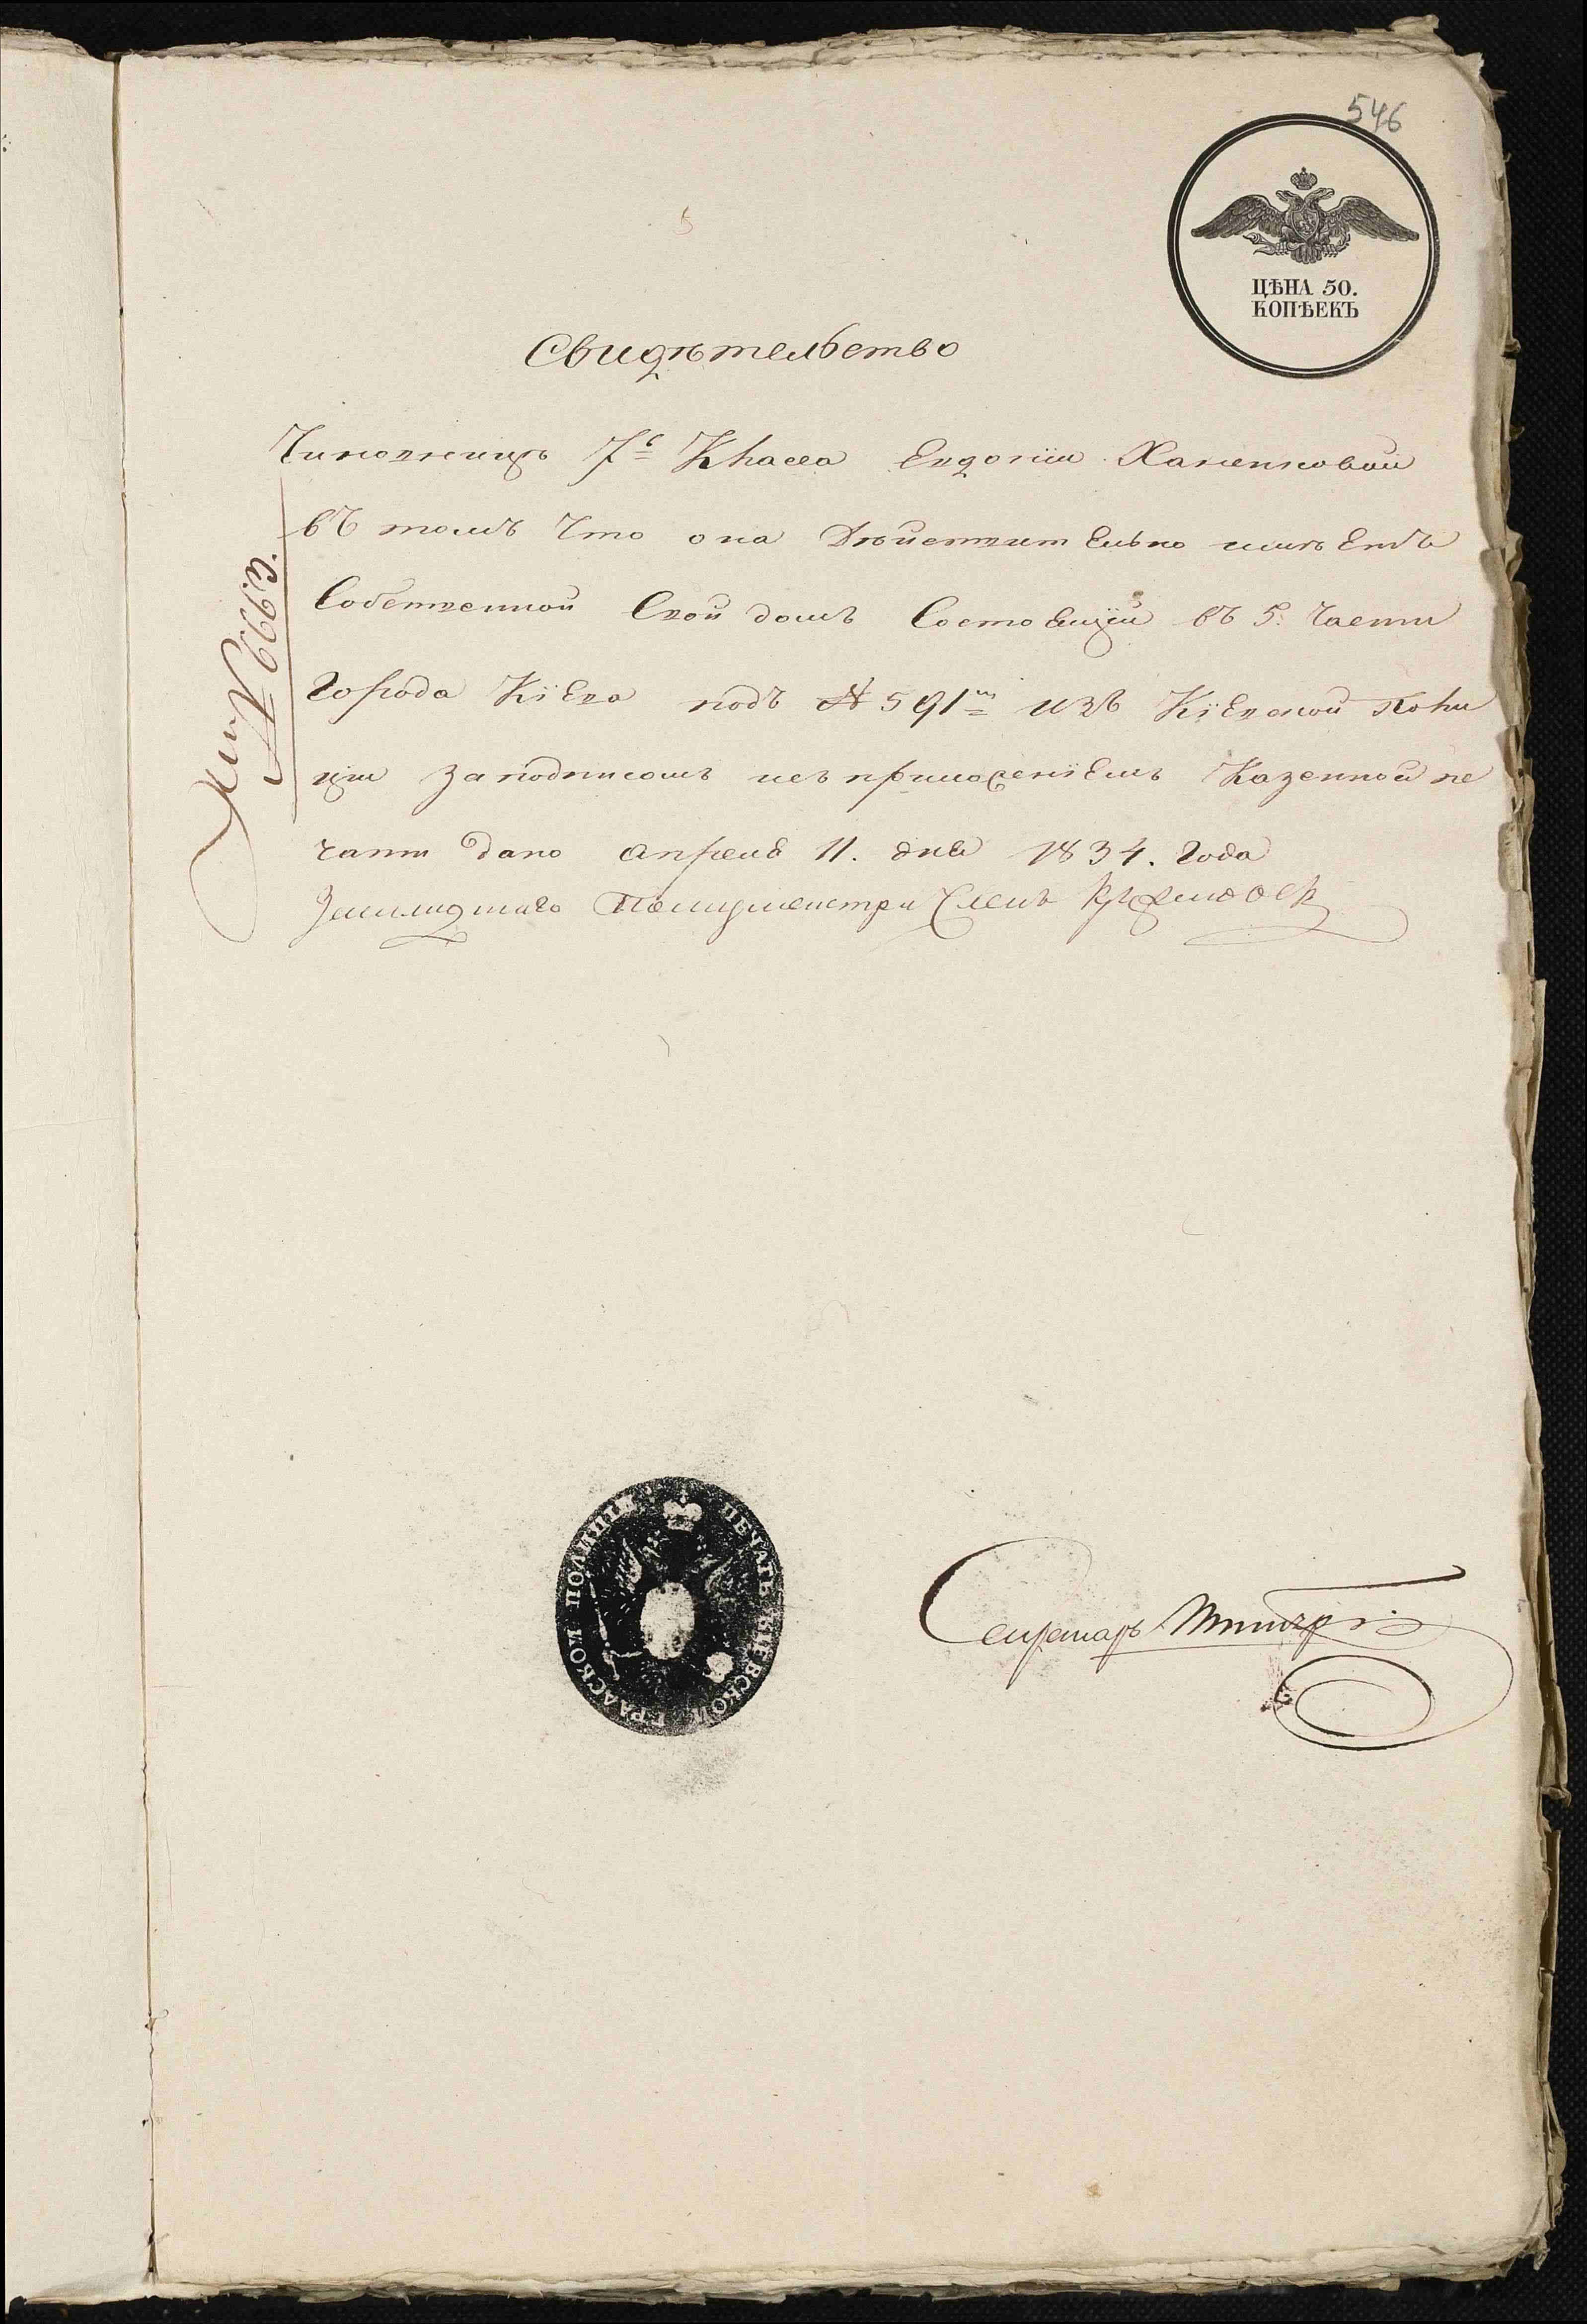 546
ЦѢНА 50.
КОПѢЕКЪ
Свидѣтельство
Чиновницѣ 7.ᵃ Класса Евдокіи Ханенковой
въ томъ что она Дѣйствительно имѣетъ
Собственной Свой домъ Состоящій въ 5. Части
Города Кіева подъ № 591ᵐ изъ Кіевской Поли
ціи за подписомъ и съ приложеніемъ Казенной пе
чати дано апреля 11. дня 1834. Года
Полицмейстера Членъ
№ 6663.
ПЕЧАТЬ КІЕВСКОЙ ГРАДСКОЙ ПОЛИЦІИ
Секретарь